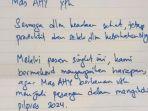 Mas AHY yth
Semoga dlm keadaan sehat, tetap
produktif dan selalu dlm
Melalui pesan singkat ini, kami
bermaksud menyampaikan harapan,
agar Mas AHY berkenan utk
menjadi pasangan dalam mengikuti
pilpres 2024.